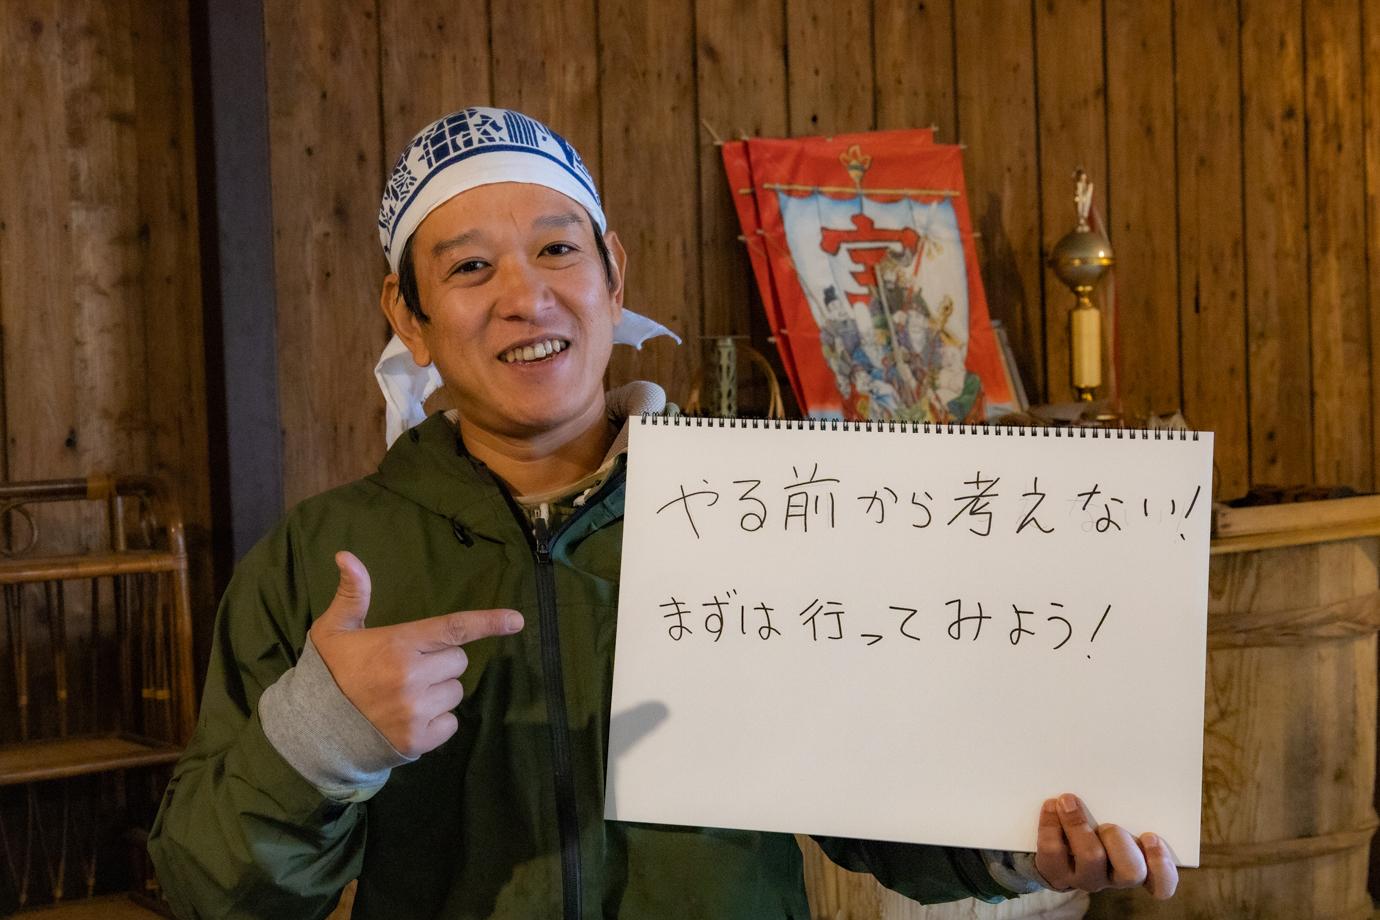 やる前から考えない!
まずは行ってみよう!